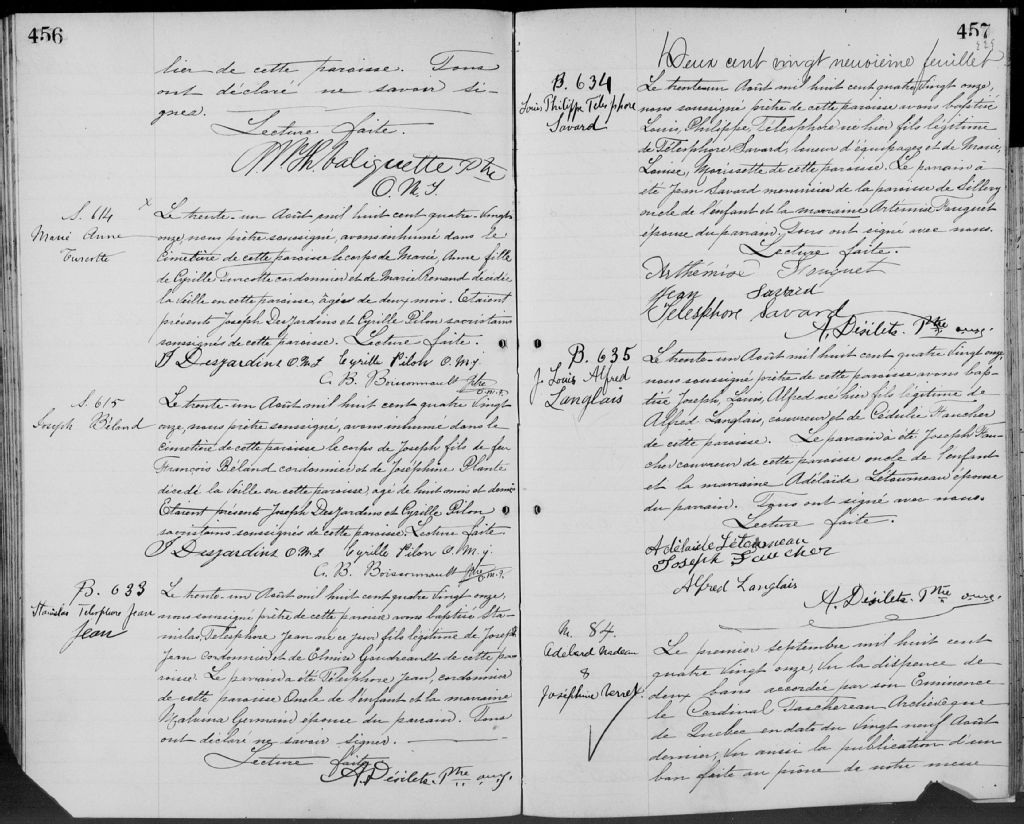 456
lier de cette paroisse. Tous
ont déclaré ne savoir si-
gner.
Lecture faite.
Valiquette Ptre
O.M.I
S. 614
Marie Anne
Turcotte
x
Le trente-un Août mil huit cent quatre-vingt
onze, nous prêtre soussigné, avons inhumé dans le
Cimetière de cette paroisse le corps de Marie, Anne fille
de Cyrille Turcotte cordonnier et de Marie Renaud décédée
la veille en cette paroisse, âgée de deux mois. Etaient
présents Joseph DesJardins et Cyrille Pilon sacristains
soussignés de cette paroisse. Lecture faite.
J Desjardins O.M.I Cyrille Pilon O.M.J
C. B. Boissonnault Ptre
O.M.I.
S. 615
Joseph Béland
Le trente-un Août mil huit cent quatre vingt
onze, nous prêtre soussigné, avons inhumé dans le
cimetière de cette paroisse le corps de Joseph fils de feu
François Béland cordonnier et de Joséphine Plante
décédé la veille en cette paroisse, agé de huit mois et demi.
Etaient présents Joseph DesJardins et Cyrille Pilon
sacristains soussignés de cette paroisse. Lecture faite.
J Desjardins O.M.I Cyrille Pilon O.M.J.
C. B. Boissonnault Ptre
O.M.I.
B. 633
Stanislas Telesphore Jean
Jean
Le trente-un Août mil huit cent quatre vingt onze,
nous soussigné prêtre de cette paroisse avons baptisé Sta-
nislas, Télesphore Jean né ce jour fils légitime de Joseph
Jean cordonnier et de Elmire Gaudreault de cette pa-
roisse. Le parrain a été Télesphore Jean, cordonnier
de cette paroisse Oncle de l'enfant et la marraine
Malvina Germain épouse du parrain. Tous
ont déclaré ne savoir signer.
Lecture faite.
A. Désilets. Ptre
457
229
Deux cent vingt neuvième feuillet
B. 634
Louis Philippe Telesphore
Savard
Le trente un Août mil huit cent quatre vingt onze,
nous soussigné prêtre de cette paroisse avons baptisé
Louis, Philippe, Télesphore né hier fils légitime
de Télesphore Savard, lineur d'équipages et de Marie,
Louise, Morissette de cette paroisse. Le parrain a
été Jean Savard menuisier de la paroisse de Sillery
oncle de l'enfant et la marraine Artémise Fauquet
épouse du parrain. Tous ont signé avec nous.
Lecture faite.
Arthémise
Jean Savard
Télesphore Savard
A. Désilets. Ptre
B. 635
J. Louis Alfred
Langlais
Le trente-un Août mil huit cent quatre vingt onze,
nous soussigné prêtre de cette paroisse avons bap-
tisé Joseph, Louis, Alfred né hier fils légitime de
Alfred Langlais, couvreur et de Cédulie Faucher
de cette paroisse. Le parrain a été Joseph Fau-
cher couvreur de cette paroisse oncle de l'enfant
et la marraine Adélaïde Létourneau épouse
du parrain. Tous ont signé avec nous.
Lecture faite.
Adélaïde Létourneau
Joseph Faucher
Alfred Langlais
A. Désilets. Ptre
M. 84.
Adelard Nadeau
&
Joséphine Verret
Le premier septembre mil huit cent
quatre vingt onze, Vu la dispense de
deux bans accordée par son Eminence
le Cardinal Taschereau Archévêque
de Québec en date du vingt neuf Août
dernier, Vu aussi la publication d'un
ban faite au prône de notre messe